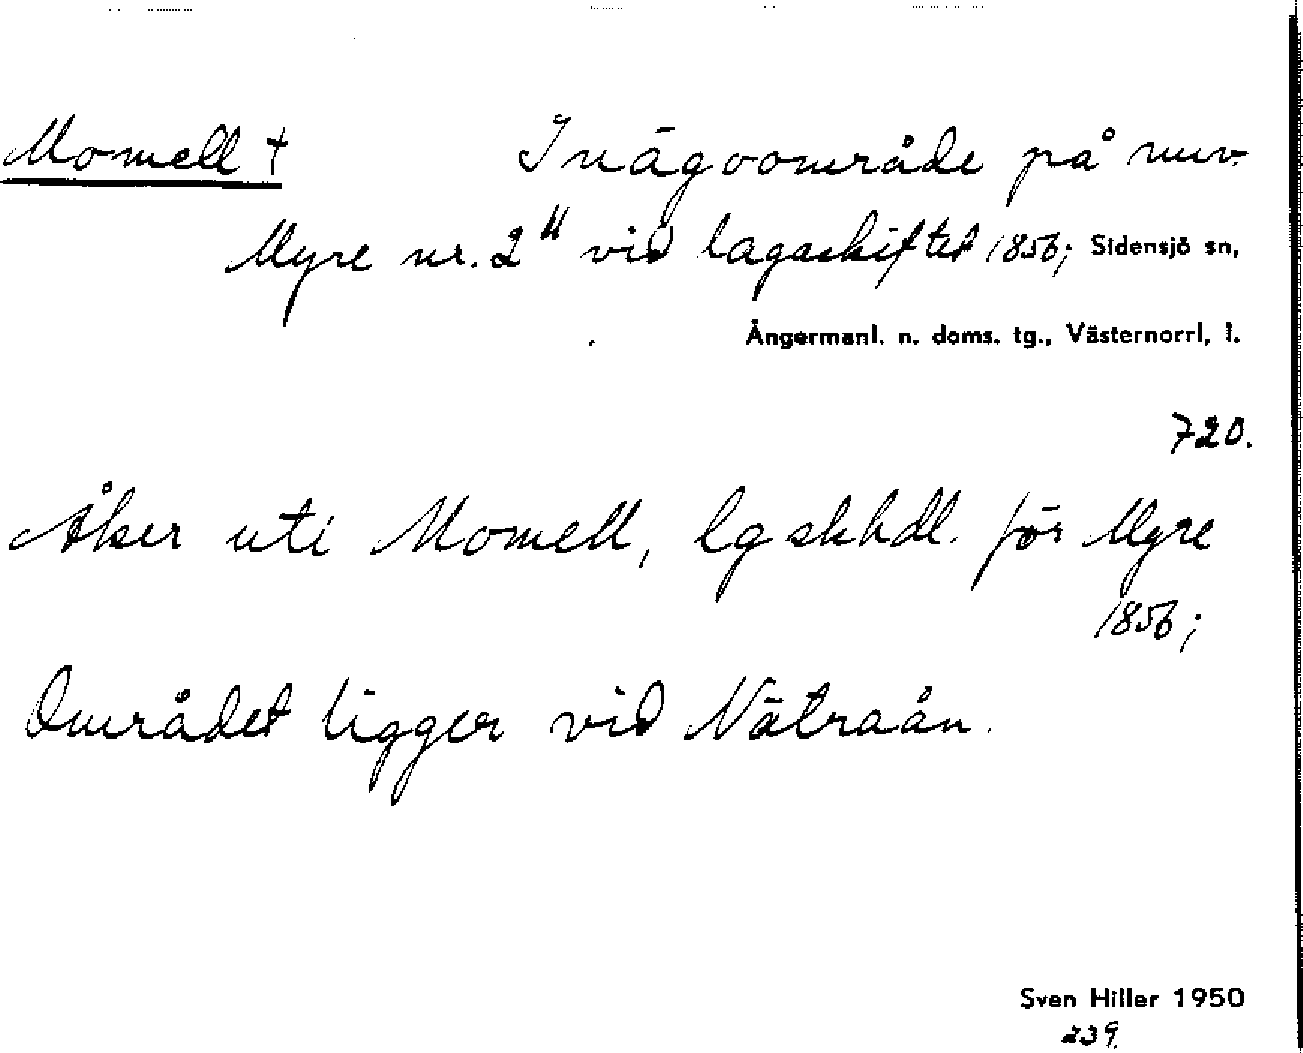 Momell † Inägoområde på nuv.
Myre nr. 2¹¹ vid lagaskiftet 1856; Sidensjö sn,
Ångermanl. n. doms. tg., Västernorrl, l.
720.
Åker uti Momell, lgskhdl. för Myre
1856;
Området ligger vid Nätraån.
Sven Hiller 1950
239.